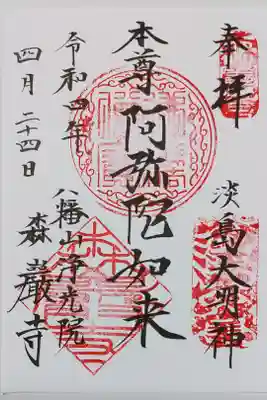 奉拝
淡島大明神
本尊阿弥陀如来
八幡山浄光院
森巖寺
令和四年
四月二十四日